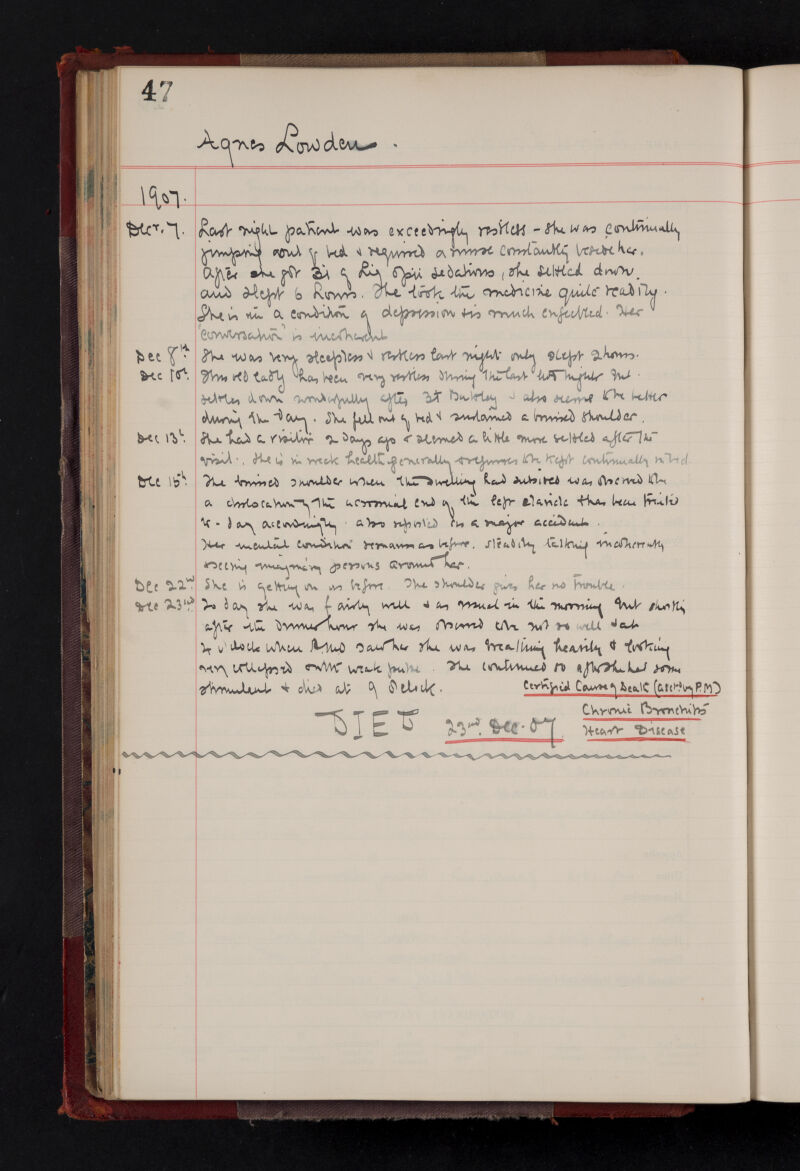 47
Agnes Lowden.
1907.
Decr. 7. Last night patient was exceedingly restless - she was continually
jumping out of bed & required a nurse constantly beside her.
After she got of Liq Opii Sedativus, she settled down
and slept 6 hours. She took the medicine quite readily.
She is in a condition of depression & is much enfeebled. Her
conversation is incoherent
Dec 8th She was very sleepless & restless last night only slept 2 hours.
Dec 10th This old lady has been very restless during the last two nights but
settles down wonderfully after & also seems to be better
during the day. She fell out of bed & sustained a bruised shoulder.
Dec 13th She had a visitor 2 days ago & seemed a little more settled after the
visit. She is in weak health generally & requires to be kept continually in bed
Dec 15th The bruised shoulder when the swelling had subsided was observed to be
a dislocation of the acromial end of the left clavicle & has been treated
to-day accordingly. also reported as a major accident.
Her mental condition remains as before, steadily talking incoherently
& seeing imaginary persons around her.
Dec 22nd She is getting on as before. The shoulder gives her no trouble.
Dec 23rd To day she was fairly well & as usual in the morning but shortly
after the dinner hour she was observed to be not so well & at
4 o'clock when I saw her she was breathing heavily & looking
very collapsed with weak pulse. She continued so after she had some
stimulent & died at 9 o'clock. Certified Cause of Death (ascert. by P.M)
DIED 23rd. Dec. 07 Chronic Bronchitis
Heart Disease